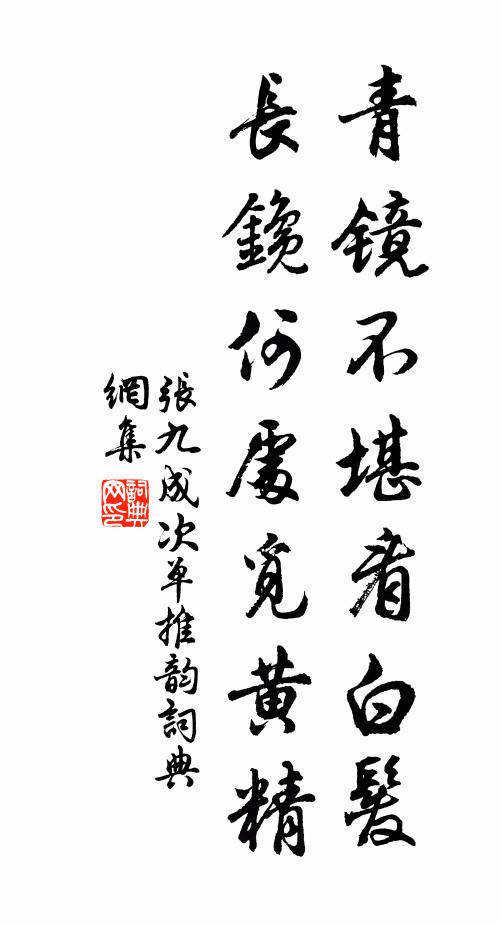 青镜不堪看白髮
長鑱何處覓黄精
張九成次单推韵詞典
網集
詞典網印